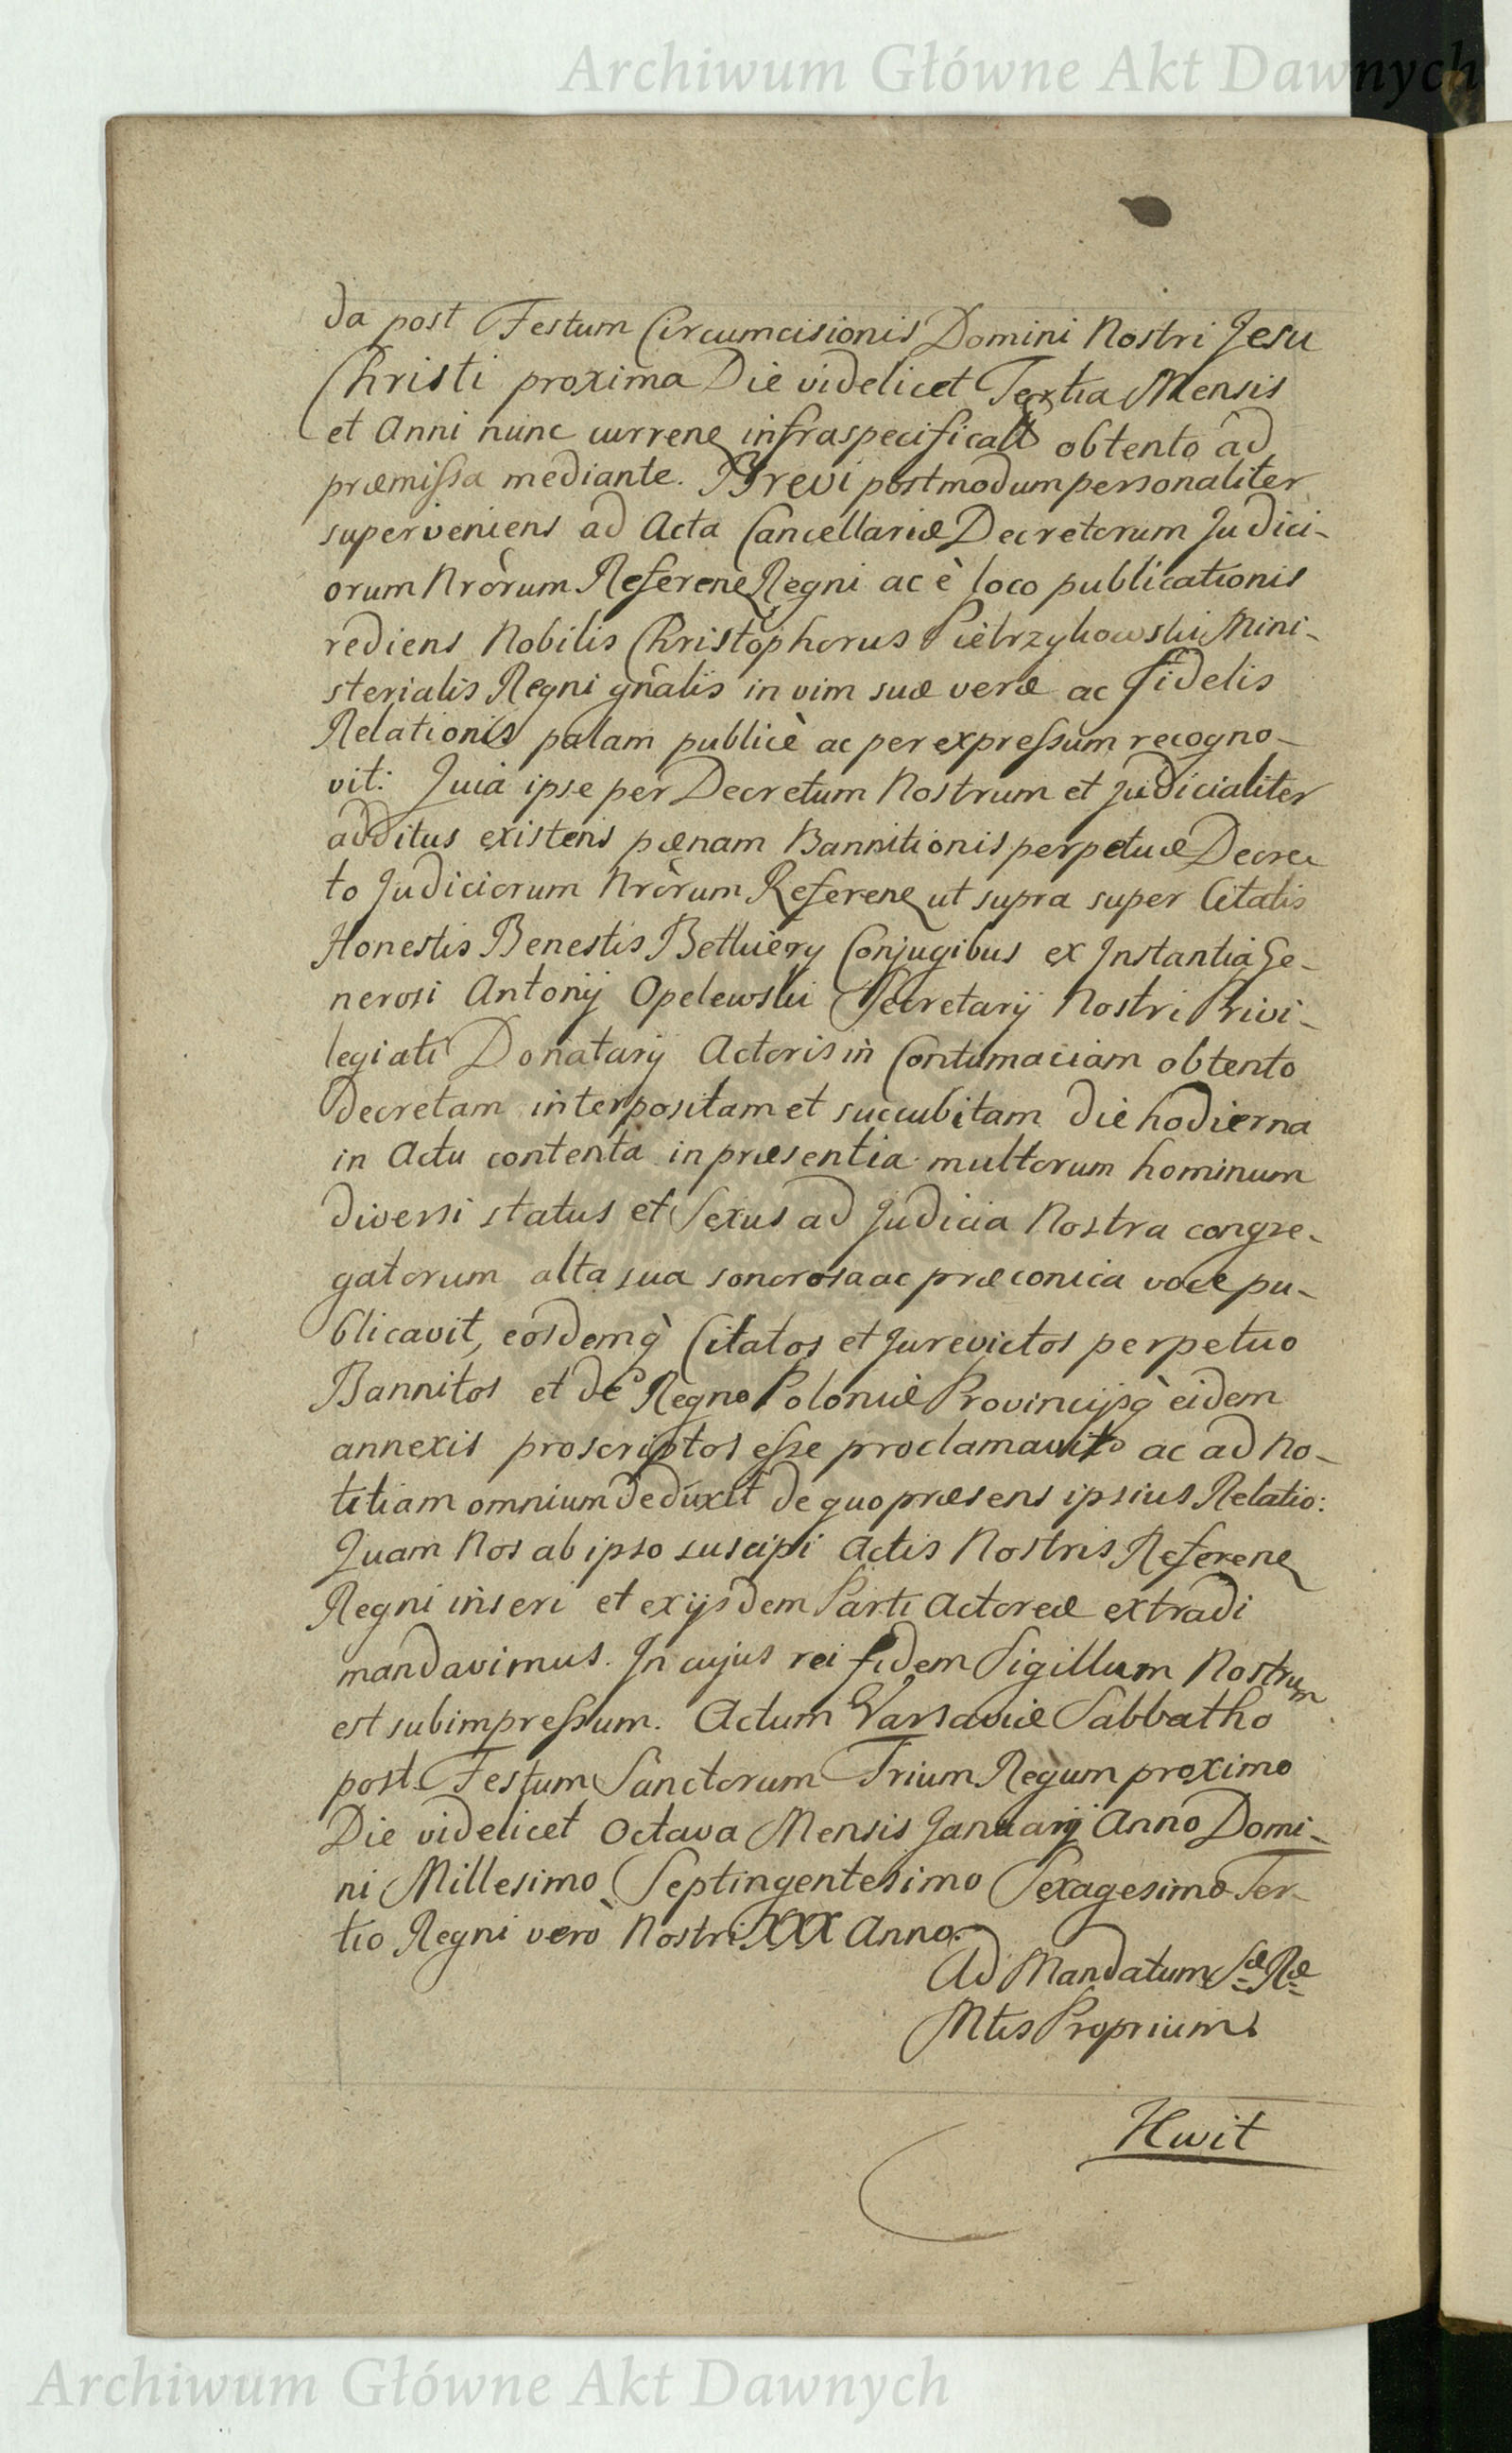 Archiwum Główne Akt Dawnych
da post Festum Circumcisionis Domini Nostri Jesu
Christi proxima Die videlicet Tertia Mensis
et Anni nunc curren infraspecificatt obtento ad
præmissa mediante. Brevi postmodum personaliter
superveniens ad Acta Cancellariæ Decretorum Judici-
orum Nrorum Referen Regni ac è loco publicationis
rediens Nobilis Christophorus Pietrzykowski Mini-
sterialis Regni gnâlis in vim suæ veræ ac fidelis
Relationis palam publicè ac per expressum recogno-
vit: Quia ipse per Decretum Nostrum et judicialiter
additus existens pænam Bannitionis perpetuæ Decre
to Judiciorum Nrorum Referen ut supra super Citatis
Honestis Benestis Conjugibus ex Instantia Ge-
nerosi Antonij Opelewski Secretarij Nostri Privi-
legiati Donatarij Actoris in Contumaciam obtento
decretam interpositam et succubitam die hodierna
in Actu contenta in præsentia multorum hominum
diversi status et Sexus ad Judicia Nostra congre-
gatorum alta sua sonorosa ac præconica voce pu-
blicavit, eosdemq̀ Citatos et Jurevictos perpetuo
Bannitos et de Regno Poloniæ Provincijsq̀ eidem
annexis proscriptos esse proclamavit ac ad no-
titiam omnium deduxit de quo præsens ipsius Relatio:
Quam Nos ab ipso suscipi Actis Nostris Referen
Regni inseri et ex ijsdem Parti Actoreæ extradi
mandavimus. In cujus rei fidem Sigillum Nostrum
est subimpressum. Actum Varsaviæ Sabbatho
post Festum Sanctorum Trium Regum proximo
Die videlicet Octava Mensis Januarij Anno Domi-
ni Millesimo Septingentesimo Sexagesimo Ter-
tio Regni verò Nostri XXX Anno.
Ad Mandatum Sæ Ræ
Mtis Proprium
Kwit
Archiwum Główne Akt Dawnych